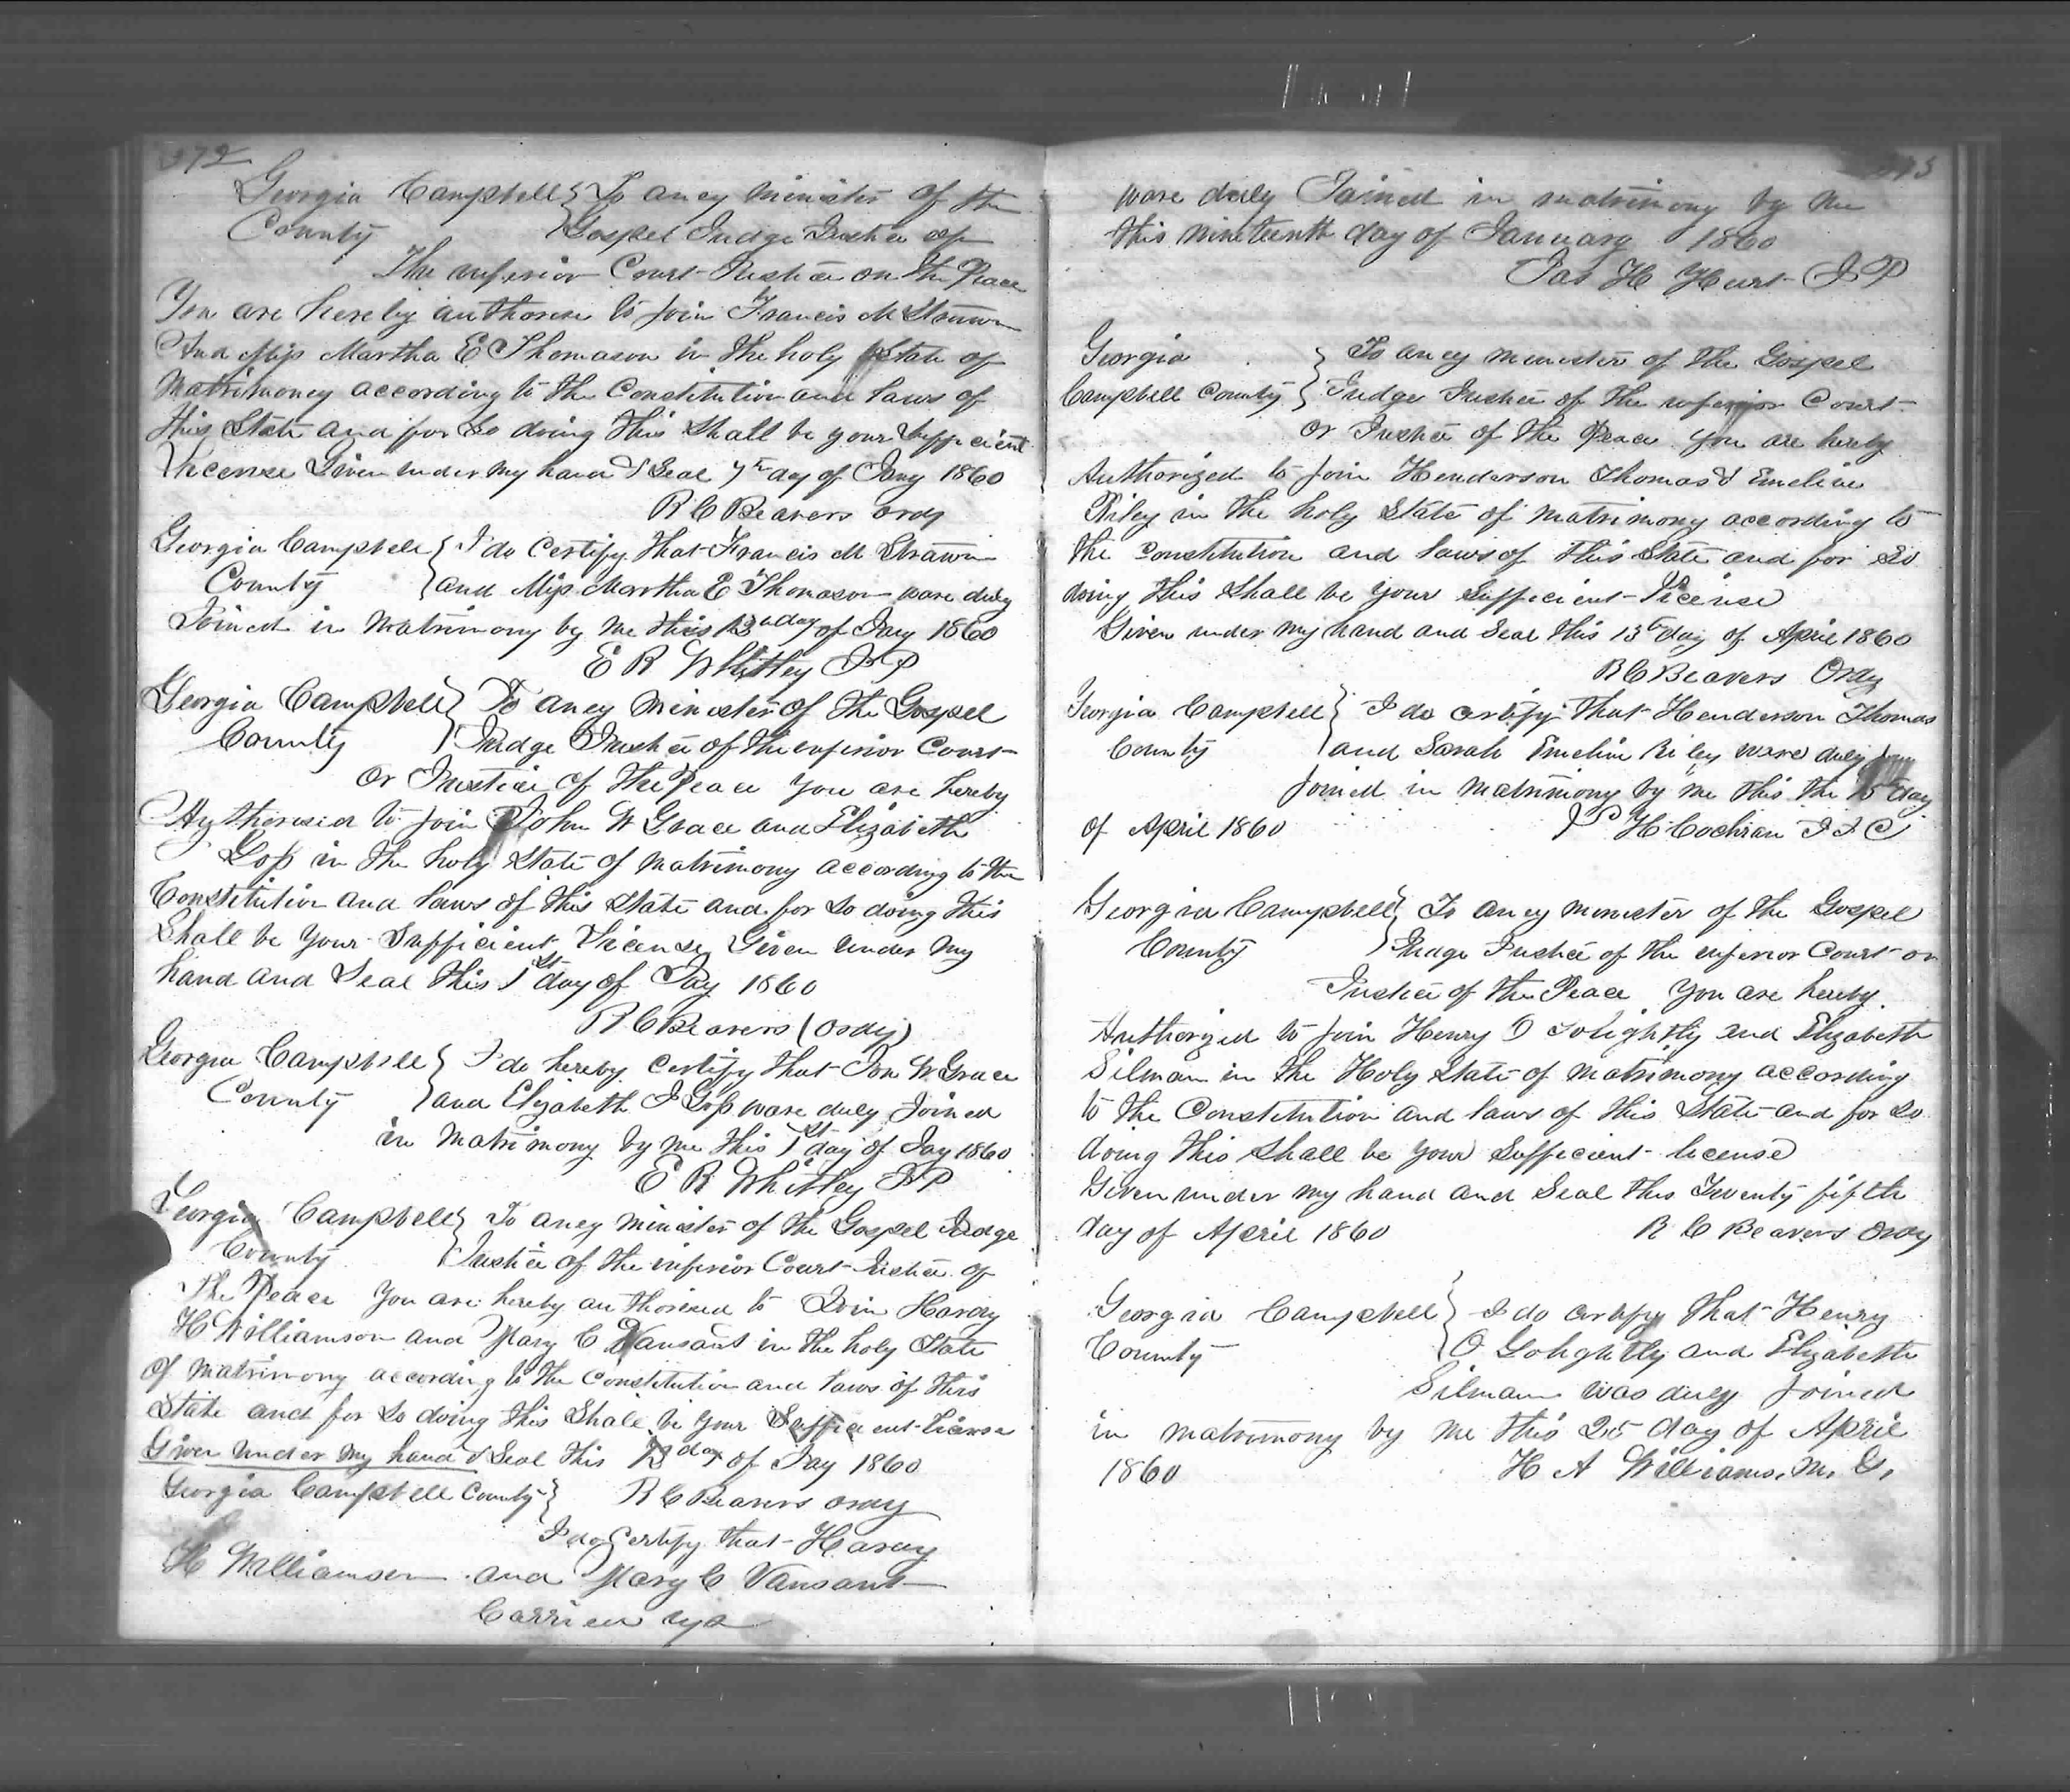 372
Georgia Campbell } To aney minister of the
County } Gospel Judge Justice of
The inferior Court Justice on the Peace
You are hereby authorise to join Francis M Strawn
And Miss Martha E Thomason in the holy State of
Matrimoney according to the Constitution and laws of
this State and for So doing this Shall be your Sufficient
License Given under my hand & Seal 7th day of Jany 1860
R C Beavers Ordy
Georgia Campbell } I do Certify that Francis M Strawn
County } and Miss Martha E Thomason ware duly
Joined in Matrimony by me this day of Jany 1860
E R Whitley J P
Georgia Campbell } To aney Minister of the Gospel
County } Judge Justice of the inferior Court
Or Justice of the Peace you are hereby
Authorised to join John W Grace and Elizabeth
Goss in the holy State of matrimony according to the
Constitution and laws of this State and for So doing this
Shall be your Sufficient License Given under my
hand and Seal this 1st day of Jay 1860
R C Beavers (Ordy)
Georgia Campbell } I do hereby certify that Jon W Grace
County } and Elizabeth J Goss ware duly Joined
in Matrimony by me this 1st day of Jay 1860
E R Whitley J P
Georgia Campbell } To aney minister of the Gospel Judge
County } Justice of the inferior Court Justice of
The Peace You are hereby authorised to Join Hardy
H Williamson and Mary C Vansant in the holy State
of matrimony according to the Constitution and laws of this
State and for So doing this Shall be your Sufficient License
Given under my hand & Seal this day of Jay 1860
Georgia Campbell County } R C Beavers Ordy
I do Certify that Hardy
H Williamson and Mary C Vansant
Carried up
ware duly Joined in matrimony by me
this nineteenth day of January 1860
Jas H Hurt J P
Georgia } To aney minister of the Gospel
Campbell County } Judge Justice of the inferior Court
Or Justice of the Peace you are hereby
Authorized to join Henderson Thomas & Emeline
Riley in the holy State of matrimony according to
the Constitution and laws of this State and for So
doing this Shall be your Sufficient License
Given under my hand and Seal this 13th day of April 1860
R C Beavers Ordy
Georgia Campbell } I do certify that Henderson Thomas
County } and Sarah Emeline Riley ware duly
joined in matrimony by me this the 15 day
of April 1860 H Cochran J I C
Georgia Campbell } To aney minister of the Gospel
County } Judge Justice of the inferior Court or
Justice of the Peace You are hereby
Authorized to join Henry O Golightly and Elizabeth
Silman in the Holy State of matrimony according
to the Constitution and laws of this State and for So
doing this Shall be your Sufficient license
Given under my hand and Seal this Twenty fifth
day of April 1860 R C Beavers Ordy
Georgia Campbell } I do certify that Henry
County } O Golightly and Elizabeth
Silman was duly joined
in matrimony by me this 25 day of April
1860 H A Williams, M. G,